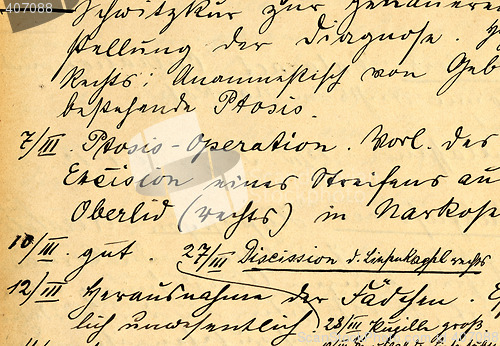 407088
Schwitzkur zur genaueren
stellung der Diagnose.
Rechts: Anamnestisch von Geb
bestehende Ptosis.
7/III. Ptosis-Operation. Vorl. des
Excision eines Streifens au
Oberlid (rechts) in Narkose
10/III. gut. 27/III Discission d. Linsenkapsel rechts
12/III Herausnahme der Fädchen.
lich unwesentlich. 28/III Pupille groß.